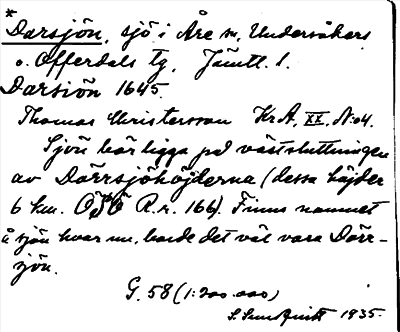 * Darsjön, sjö i Åre sn, Undersåkers
o. Offerdals tg, Jämtl. l.
Darsiön 1645.
Thomas Christersson Kr A, XX, N:o 4.
Sjön bör ligga på västsluttningen
av Dörrsjöhöjderna (dessa höjder
6 km. ÖSÖ R.r. 166). Finns namnet
å sjön kvar nu, borde det väl vara Dörr-
sjön.
G. 58 (1:200.000)
1935.